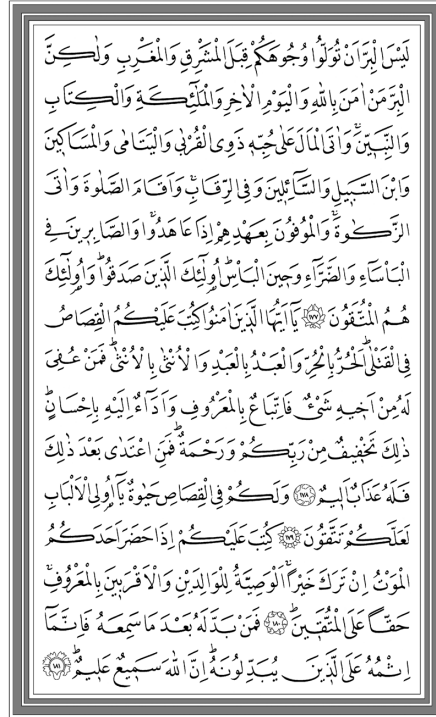 لَيْسَ الْبِرَّ اَنْ تُوَلُّوا وُجُوهَكُمْ قِبَلَ الْمَشْرِقِ وَالْمَغْرِبِ وَلٰكِنَّ
الْبِرَّ مَنْ اٰمَنَ بِاللّٰهِ وَالْيَوْمِ الْاٰخِرِ وَالْمَلٰٓئِكَةِ وَالْكِتَابِ
وَالنَّبِيّٖنَۚ وَاٰتَى الْمَالَ عَلٰى حُبِّهٖ ذَوِي الْقُرْبٰى وَالْيَتَامٰى وَالْمَسَاكٖينَ
وَابْنَ السَّبٖيلِ وَالسَّٓائِلٖينَ وَفِي الرِّقَابِۚ وَاَقَامَ الصَّلٰوةَ وَاٰتَى
الزَّكٰوةَۚ وَالْمُوفُونَ بِعَهْدِهِمْ اِذَا عَاهَدُواۚ وَالصَّابِرٖينَ فِي
الْبَأْسَٓاءِ وَالضَّرَّٓاءِ وَحٖينَ الْبَأْسِۜ اُو۬لٰٓئِكَ الَّذٖينَ صَدَقُواۜ وَاُو۬لٰٓئِكَ
هُمُ الْمُتَّقُونَ ﴿١٧٧﴾ يَٓا اَيُّهَا الَّذٖينَ اٰمَنُوا كُتِبَ عَلَيْكُمُ الْقِصَاصُ
فِي الْقَتْلٰىۜ اَلْحُرُّ بِالْحُرِّ وَالْعَبْدُ بِالْعَبْدِ وَالْاُنْثٰى بِالْاُنْثٰىۜ فَمَنْ عُفِيَ
لَهُ مِنْ اَخٖيهِ شَيْءٌ فَاتِّبَاعٌ بِالْمَعْرُوفِ وَاَدَٓاءٌ اِلَيْهِ بِاِحْسَانٍۜ
ذٰلِكَ تَخْفٖيفٌ مِنْ رَبِّكُمْ وَرَحْمَةٌۜ فَمَنِ اعْتَدٰى بَعْدَ ذٰلِكَ
فَلَهُ عَذَابٌ اَلٖيمٌ ﴿١٧٨﴾ وَلَكُمْ فِي الْقِصَاصِ حَيٰوةٌ يَٓا اُو۬لِي الْاَلْبَابِ
لَعَلَّكُمْ تَتَّقُونَ ﴿١٧٩﴾ كُتِبَ عَلَيْكُمْ اِذَا حَضَرَ اَحَدَكُمُ
الْمَوْتُ اِنْ تَرَكَ خَيْرًاۚ اَلْوَصِيَّةُ لِلْوَالِدَيْنِ وَالْاَقْرَبٖينَ بِالْمَعْرُوفِۚ
حَقًّا عَلَى الْمُتَّقٖينَۜ ﴿١٨٠﴾ فَمَنْ بَدَّلَهُ بَعْدَ مَا سَمِعَهُ فَاِنَّمَٓا
اِثْمُهُ عَلَى الَّذٖينَ يُبَدِّلُونَهُۜ اِنَّ اللّٰهَ سَمٖيعٌ عَلٖيمٌۜ ﴿١٨١﴾